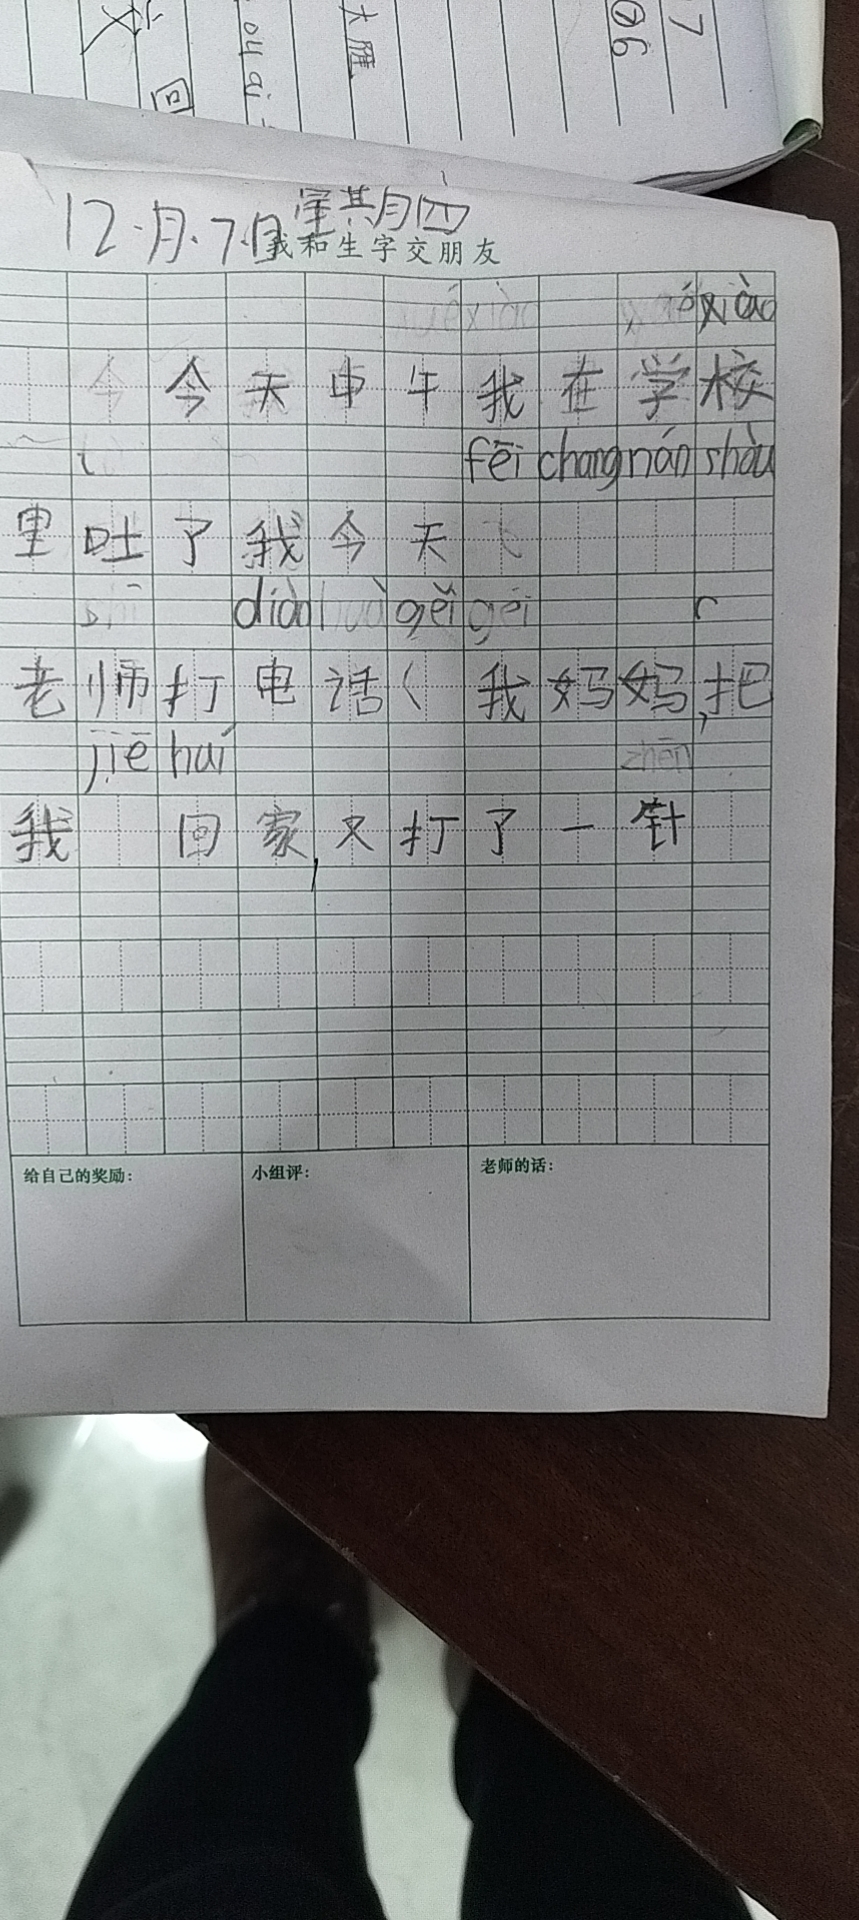 7
06
大雁
文
回
12.月.7.日星其月四
我和生字交朋友
xiào
今天中午我在学校
fēi chang nán shòu
里吐了我今天
diàn huà gěi
老师打电话 我妈妈,把
jiē huí
zhēn
我 回家,又打了一针
给自己的奖励:
小组评:
老师的话: